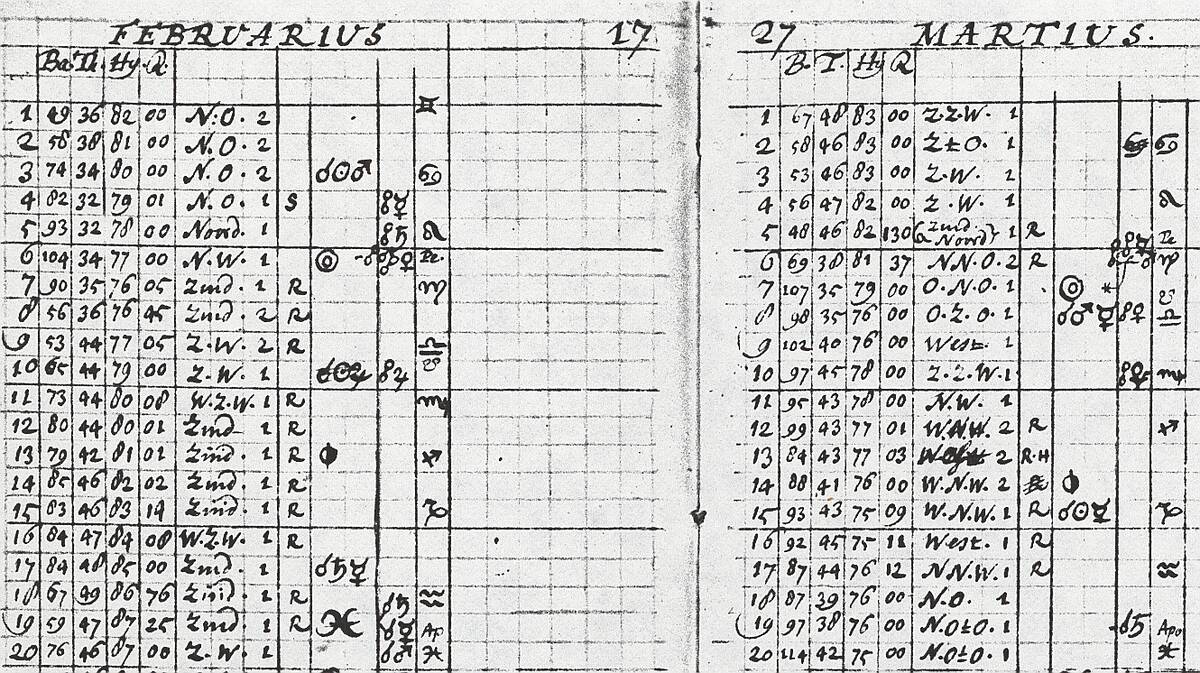 FEBRUARIUS 17
Ba. Th. Hy. R.
1 49 36 82 00 N.O. 2 ♊
2 58 38 81 00 N.O. 2
3 74 34 80 00 N.O. 2 ☌☉♂ ♋
4 82 32 79 01 N.O. 1 S ☍☿
5 93 32 78 00 Noord. 1 ☍♄ ♌
6 104 34 77 00 N.W. 1 Pe.
7 90 35 76 05 Zuid. 1 R ♍
8 56 36 76 45 Zuid. 2 R
9 53 44 77 05 Z.W. 2 R ♎
10 65 44 79 00 Z.W. 1 ☍♃ ☋
11 73 44 80 08 W.Z.W. 1 R ♏
12 80 44 80 01 Zuid 1 R
13 79 42 81 01 Zuid. 1 R ♐
14 85 46 82 02 Zuid. 1 R
15 83 46 83 14 Zuid. 1 R ♑
16 84 47 84 08 W.Z.W. 1 R
17 84 48 85 00 Zuid. 1 ☌♄☿
18 67 49 86 76 Zuid. 1 R ☍♄ ♒
19 59 47 87 25 Zuid. 1 R Ap
20 76 46 87 00 Z.W. 1 ☍♂ ♓
27 MARTIUS.
B. T. Hy R
1 67 48 83 00 Z.Z.W. 1
2 58 46 83 00 Z±O. 1 ♋
3 53 46 83 00 Z.W. 1
4 56 47 82 00 Z.W. 1 ♌
5 48 46 82 130 Zuid Noord 1 R Pe
6 69 38 81 37 NN.O. 2 R ♍
7 107 35 79 00 O.N.O. 1 *
8 98 35 76 00 O.Z.O. 1 ☌♂☿ ☍♀ ♎
9 102 40 76 00 West. 1
10 97 45 78 00 Z.Z.W. 1 ♏
11 95 43 78 00 N.W. 1
12 99 43 77 01 W.N.W. 2 R ♐
13 84 43 77 03 2 R.H
14 88 41 76 00 W.N.W. 2
15 93 43 75 09 W.N.W. 1 R ☌☉☿ ♑
16 92 45 75 11 West. 1 R
17 87 44 76 12 NN.W. 1 R ♒
18 87 39 76 00 N.O. 1
19 97 38 76 00 N.O±O. 1 ☍♄ Apo
20 114 42 75 00 N.O±O. 1 ♓